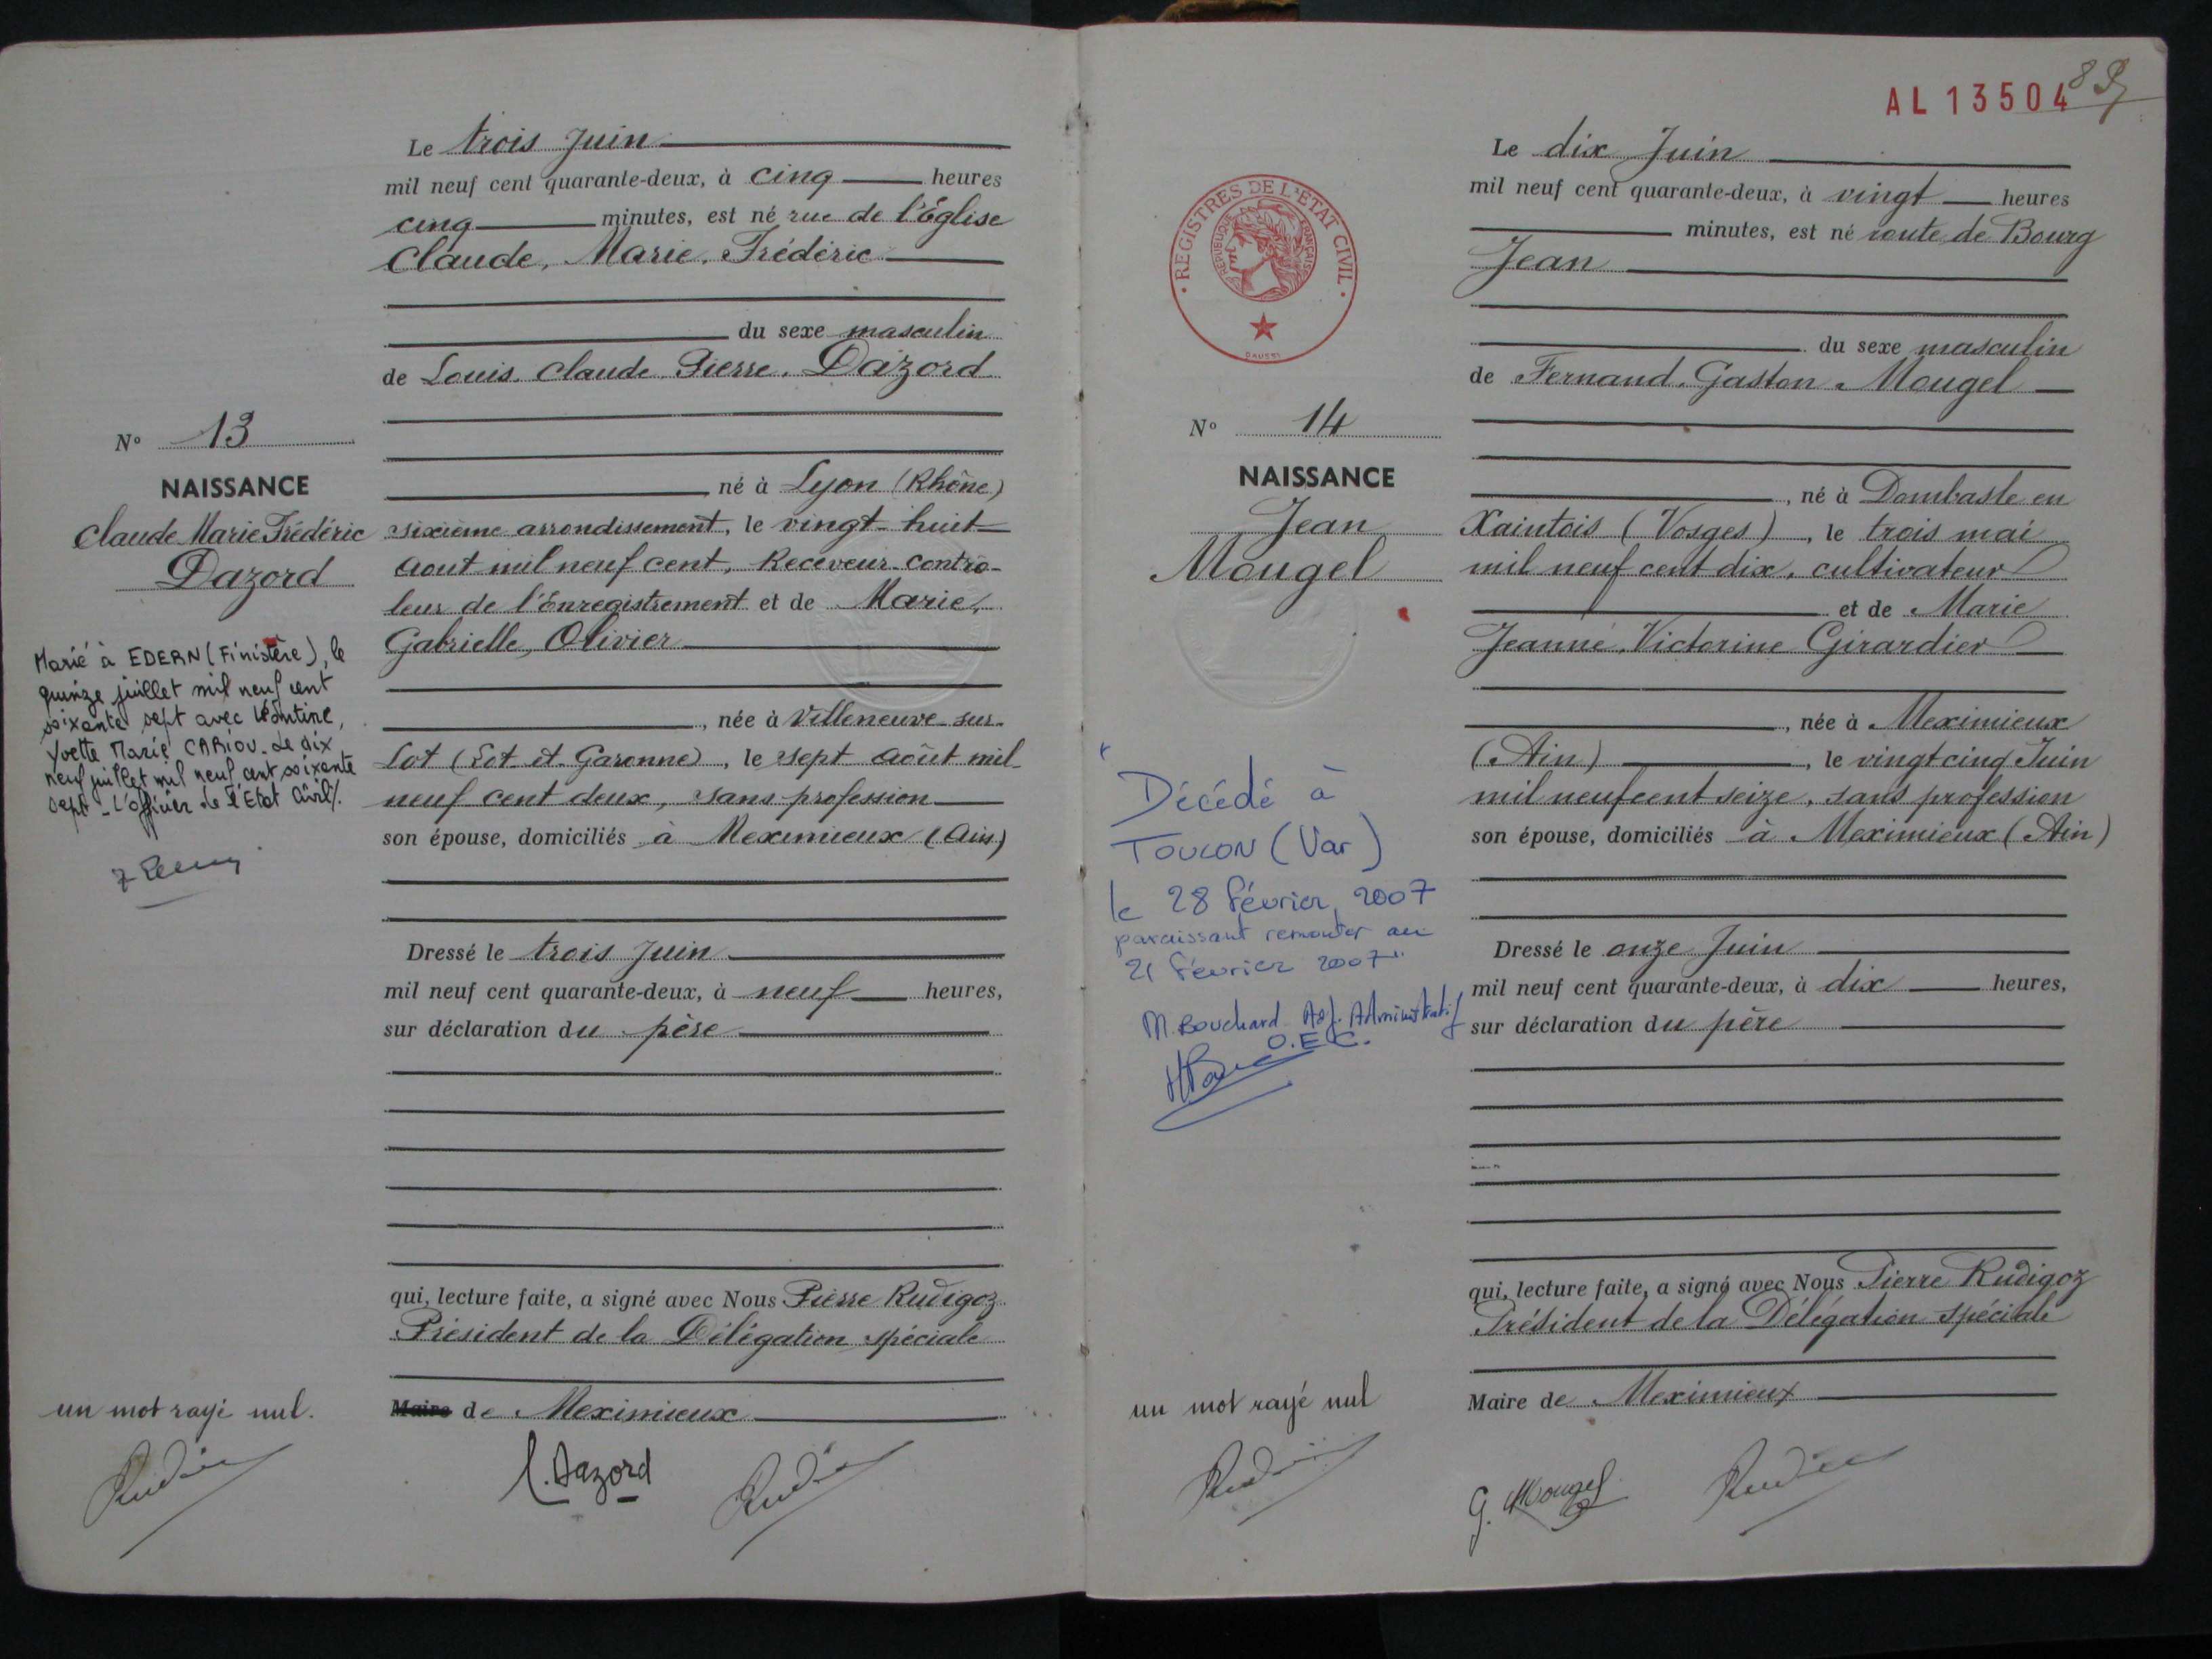 Le trois Juin
mil neuf cent quarante-deux, à cinq heures
cinq minutes, est né rue de l'Église
Claude, Marie, Frédéric
du sexe masculin
de Louis, Claude, Pierre, Dazord
né à Lyon (Rhône)
sixième arrondissement, le vingt-huit
aout mil neuf cent, Receveur-Contrô-
leur de l'Enregistrement et de Marie,
Gabrielle, Olivier
, née à Villeneuve-sur-
Lot (Lot et Garonne), le sept août mil
neuf cent deux, sans profession
son épouse, domiciliés à Meximieux (Ain)
Dressé le trois Juin
mil neuf cent quarante-deux, à neuf heures,
sur déclaration du père
qui, lecture faite, a signé avec Nous Pierre Rudigoz
Président de la Délégation spéciale
Maire de Meximieux
L. Dazord
No 13
NAISSANCE
Claude Marie Frédéric
Dazord
Marié à EDERN (Finistère), le
quinze juillet mil neuf cent
soixante sept avec Léontine,
Yvette Marie CARIOU. Le dix
neuf juillet mil neuf cent soixante
sept _ L'officier de l'Etat Civil.
un mot rayé nul.
AL 13504
89
Le dix Juin
mil neuf cent quarante-deux, à vingt heures
minutes, est né route de Bourg
Jean
du sexe masculin
de Fernand, Gaston, Mougel
, né à Dombasle en
Xaintois (Vosges), le trois mai
mil neuf cent dix, cultivateur
et de Marie
Jeanne, Victorine Girardier
, née à Meximieux
(Ain), le vingt cinq Juin
mil neuf cent seize, sans profession
son épouse, domiciliés à Meximieux (Ain)
Dressé le onze Juin
mil neuf cent quarante-deux, à dix heures,
sur déclaration du père
qui, lecture faite, a signé avec Nous Pierre Rudigoz
Président de la Délégation spéciale
Maire de Meximieux
G. Mougel
REGISTRES DE L'ETAT CIVIL
RÉPUBLIQUE FRANÇAISE
No 14
NAISSANCE
Jean
Mougel
Décédé à
TOULON (Var)
le 28 février 2007
paraissant remonter au
21 février 2007"
M. Bouchard Adj. Administratif
O.E.C.
un mot rayé nul